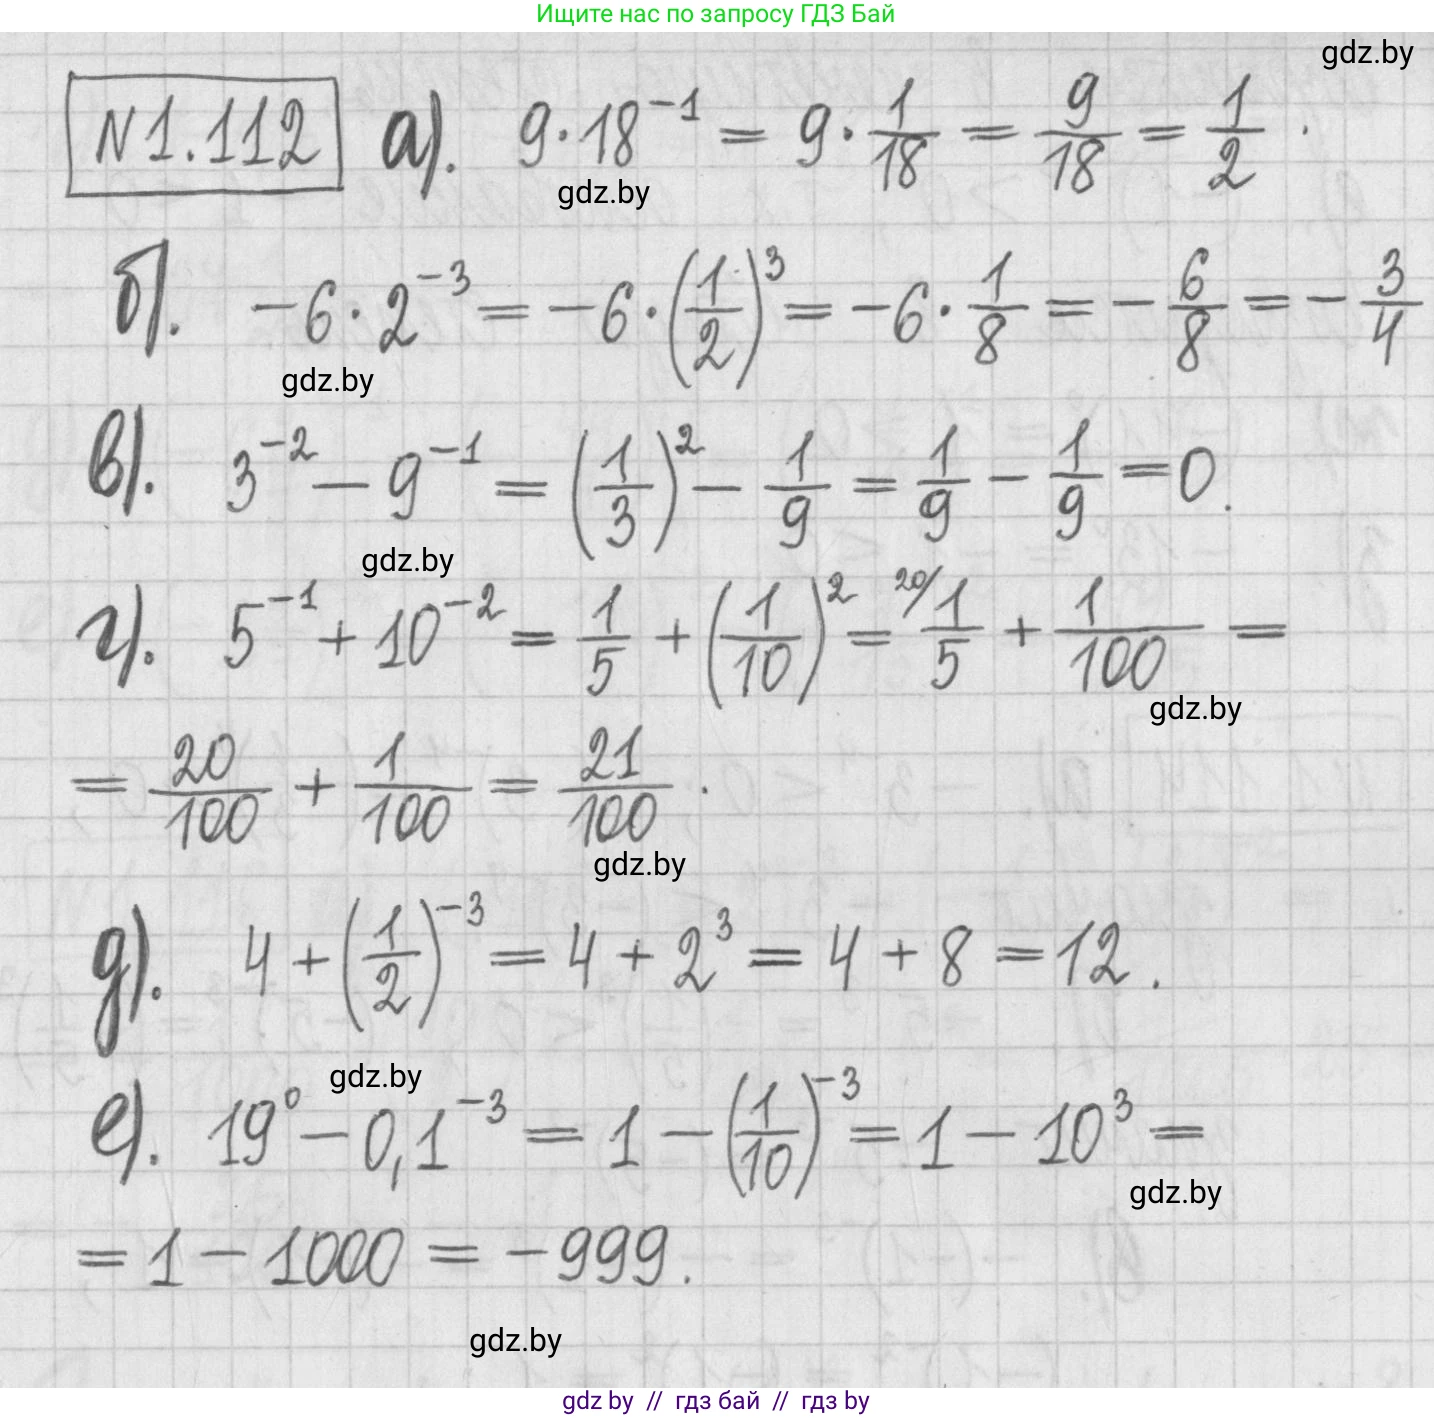 Ищите нас по запросу ГДЗ Бай
gdz.by
N1.112 а). 9·18⁻¹ = 9·1/18 = 9/18 = 1/2.
gdz.by
б). -6·2⁻³ = -6·(1/2)³ = -6·1/8 = -6/8 = -3/4
gdz.by
в). 3⁻² - 9⁻¹ = (1/3)² - 1/9 = 1/9 - 1/9 = 0.
gdz.by
г). 5⁻¹ + 10⁻² = 1/5 + (1/10)² = ²⁰⁄1/5 + 1/100 =
gdz.by
= 20/100 + 1/100 = 21/100.
gdz.by
д). 4 + (1/2)⁻³ = 4 + 2³ = 4 + 8 = 12.
gdz.by
е). 19⁰ - 0,1⁻³ = 1 - (1/10)⁻³ = 1 - 10³ =
gdz.by
= 1 - 1000 = -999.
gdz.by
gdz by // гдз бай // гдз by